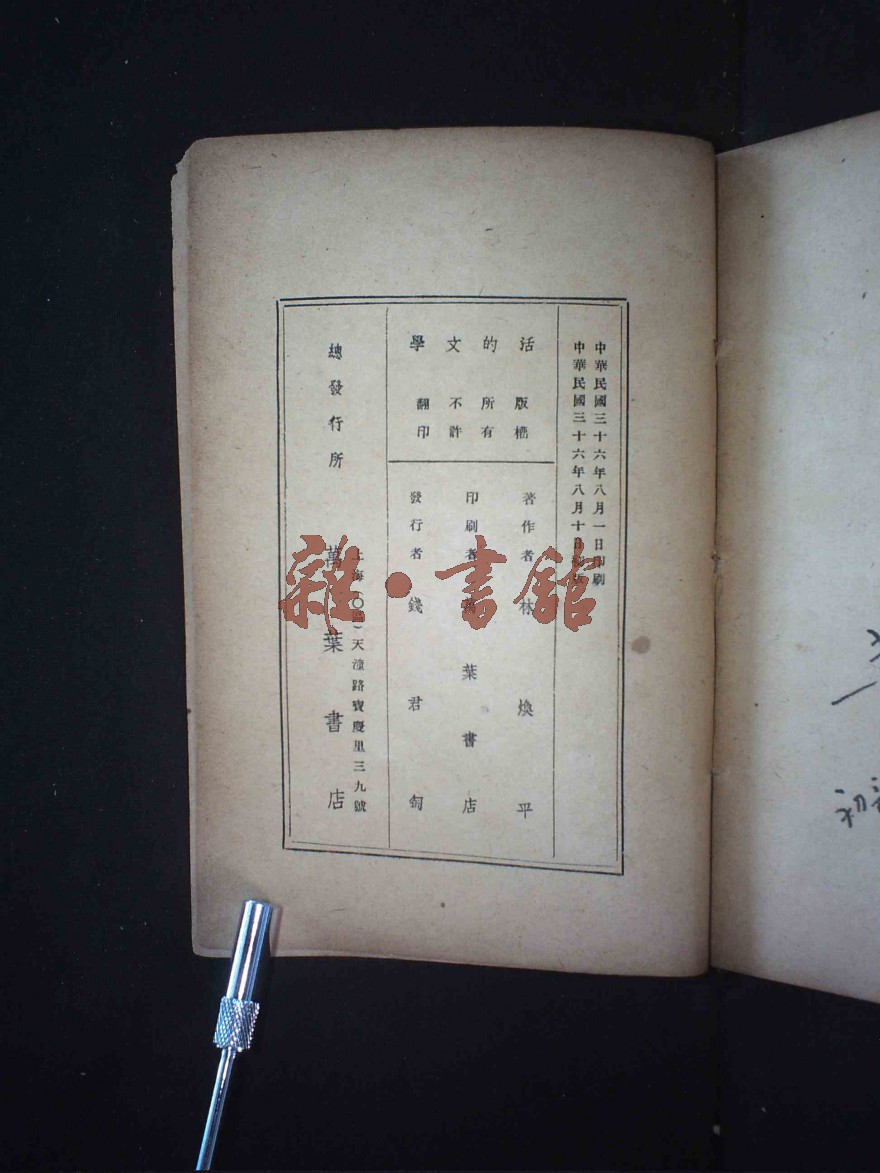 中華民國三十六年八月一日印刷
中華民國三十六年八月十日初版
活的文學
版權所有
不許翻印
著作者 林煥平
印刷者 萬葉書店
發行者 錢君匋
上海(〇)天潼路寶慶里三九號
總發行所 萬葉書店
雜·書館
初